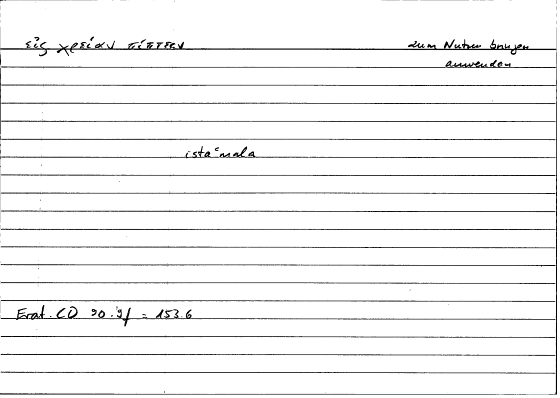 εἰς χρείαν πίπτειν zum Nutzen bringen
anwenden
istaʿmala
Erat. CD 90.9f = 153.6